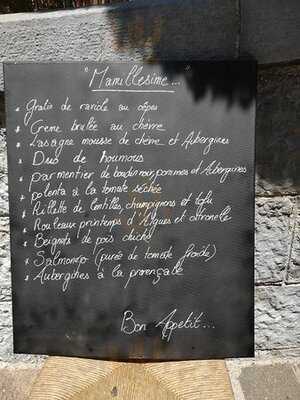 "Mamillesime..."
* Gratin de raviole au cèpes
* Creme brulée au chèvre
* Lasagne mousse de chèvre et Aubergines
* Duo de houmous
* parmentier de boudin noir, pommes et Aubergines
* polenta à la tomate séchée
* Rillette de lentilles, champignons et tofu
* Rouleaux printemps d'Algues et citronelle
* Beignets de pois chiche
* Salmorejo (purée de tomate froide)
* Aubergines à la provençale
Bon Appetit...